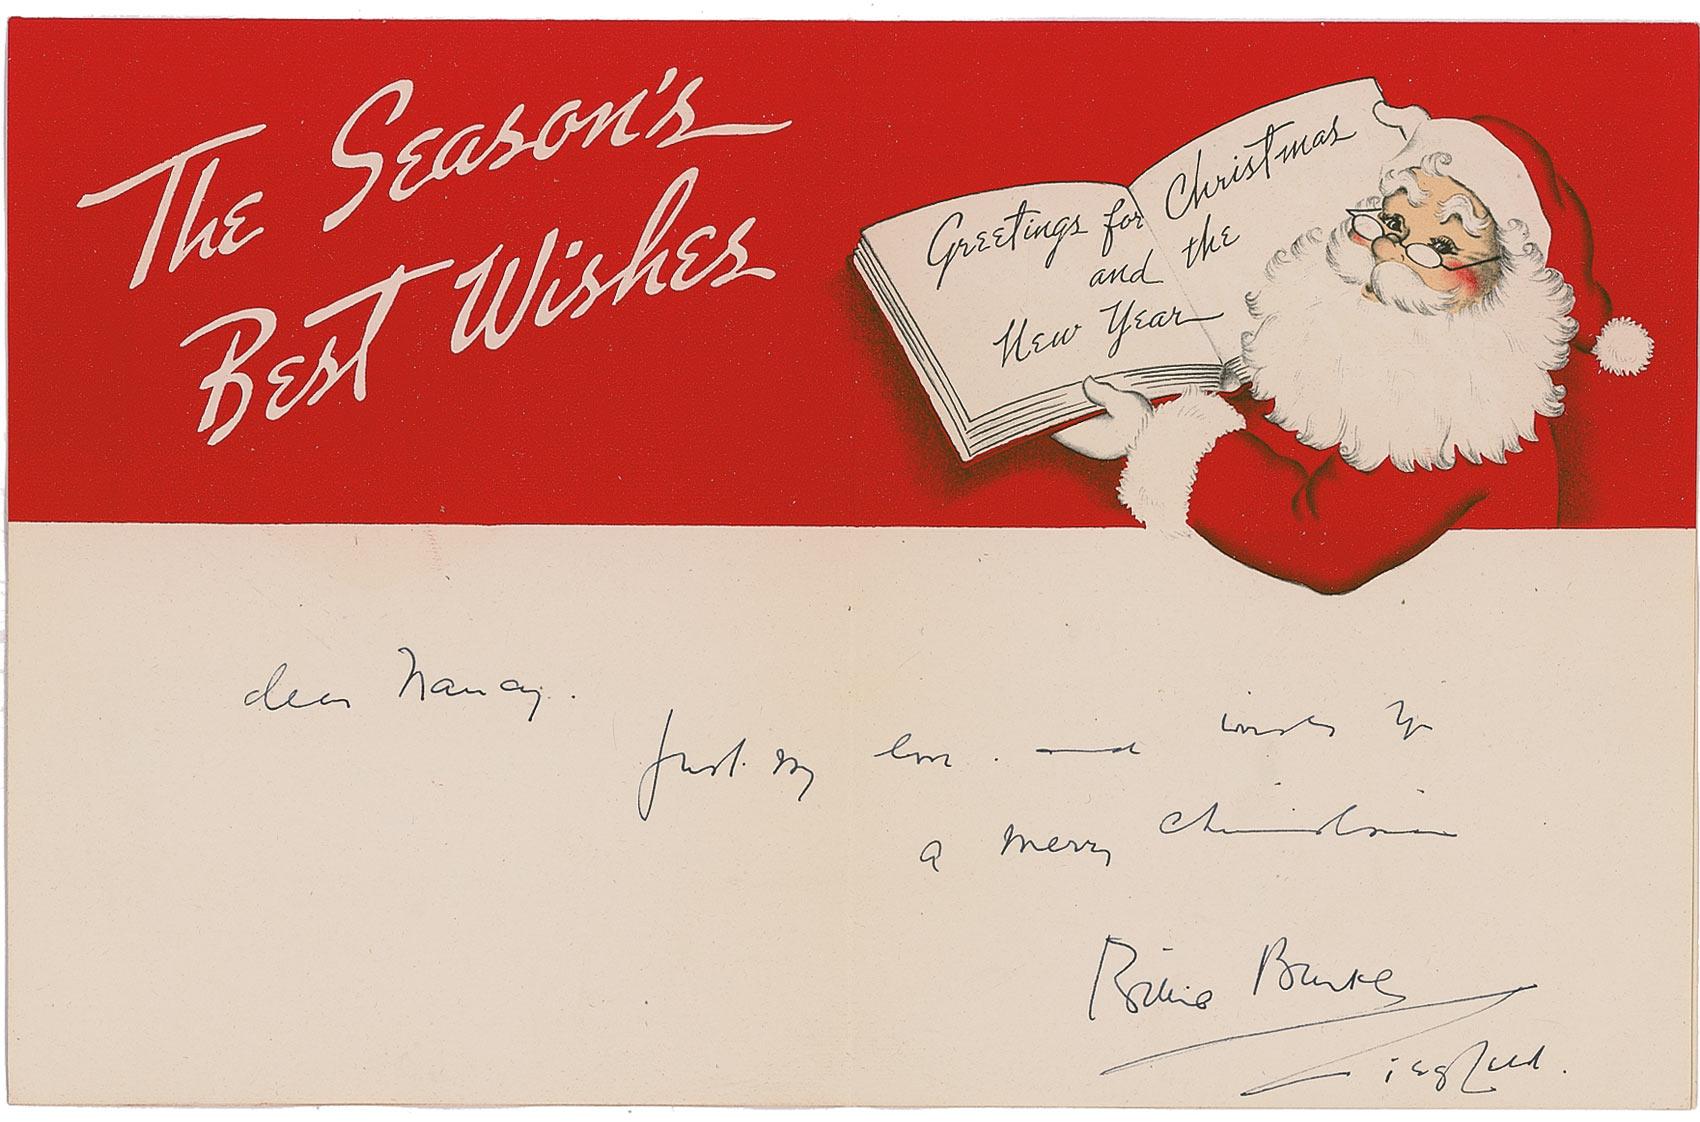 The Season's
Best Wishes
Greetings for Christmas
and the
New Year
dear Nancy.
Just my love. and wish you
a merry Christmas
Billie Burke
Ziegfeld.